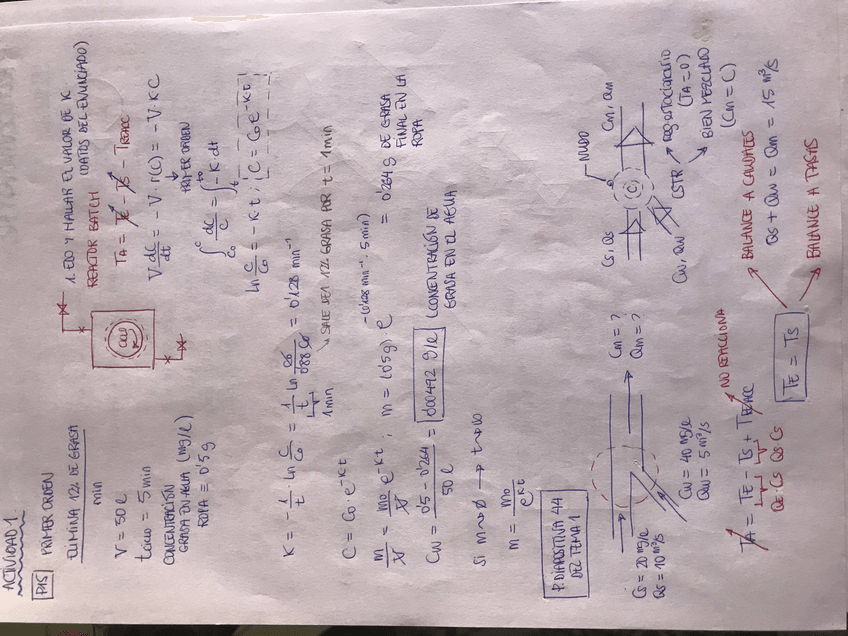 ACTIVIDAD 1.
P15 PRIMER ORDEN
ELIMINA 12% DE GRASA
min
V = 50 l
tciclo = 5 min
CONCENTRACIÓN
GRASA EN AGUA (mg/l)
ROPA ≡ 0'5 g
1. EDO Y HALLAR EL VALOR DE K
(DATOS DEL ENUNCIADO)
REACTOR BATCH
TA = TE - TS - TREACC
V dC/dt = -V · r(C) = -V · K C
PRIMER ORDEN
∫ dC/C = ∫ -K · dt
ln C/Co = -K t ; C = Co e^-Kt
K = -1/t · ln C/Co = 1/t ln Co/0'88 Co = 0'128 min⁻¹
1 min
SALE DEL 12% GRASA POR t = 1 min
C = Co · e^-K·t
m/V = mo/V e^-K·t ; m = (0'5 g) e^-(0'128 min⁻¹ · 5 min) = 0'264 g DE GRASA
FINAL EN LA
ROPA
Cw = 0'5 - 0'264 / 50 l = 0'00492 g/l (CONCENTRACIÓN DE
GRASA EN EL AGUA)
Si m → 0 → t → ∞
m = mo / e^K·t
P. DIAPOSITIVA 44
DEL TEMA 1
Cs = 20 mg/l
Qs = 10 m³/s
Cw = 40 mg/l
Qw = 5 m³/s
Cm = ?
Qm = ?
Cs, Qs
NUDO
Cm, Qm
Cw, Qw
C
CSTR
(TA = 0)
BIEN MEZCLADO
(Cm = C)
TA = TE - TS + TREACC
NO REACCIONA
QE · CE QS CS
TE = TS
BALANCE A CAUDALES
Qs + Qw = Qm = 15 m³/s
BALANCE A TASAS